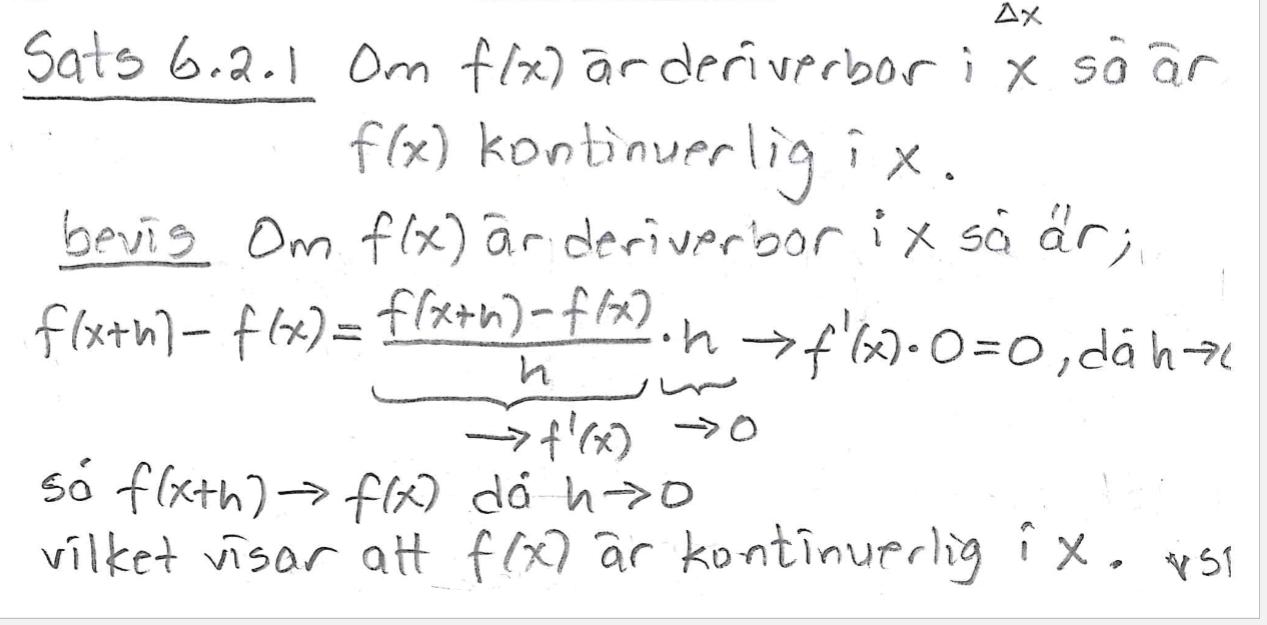 Δx
Sats 6.2.1 Om f(x) är deriverbar i x så är
f(x) kontinuerlig i x.
bevis Om f(x) är deriverbar i x så är;
f(x+h) - f(x) = \frac{f(x+h)-f(x)}{h} · h → f'(x)·0=0, då h→
→ f'(x) → 0
så f(x+h) → f(x) då h→0
vilket visar att f(x) är kontinuerlig i x.